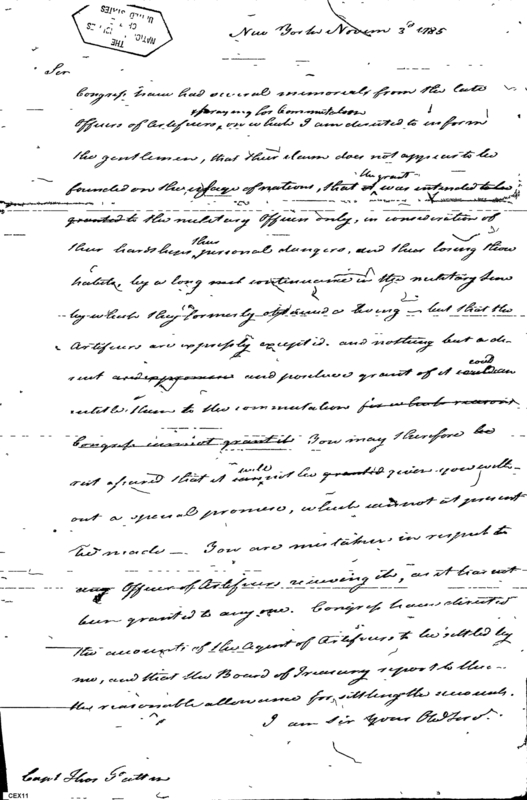 THE
NATIONAL ARCHIVES
UNITED STATES
New York Novem 3d 1785
Sir
Congress have had several memorials from the late
praying for Commutation
Officers of Artificers, on which I am directed to inform
the gentlemen, that their claim does not appear to be
the grant
founded on the usage of nations, that it was intended to be
granted to the military Officers only, in consideration of
their hardships, personal dangers, and thus losing those
habits, by a long continuance in the military line
by which they formerly obtained a living — but that the
Artificers are expressly excepted. and nothing but a di-
could
rect and positive grant of it
entitle them to the commutation for which reason
Congress cannot grant it You may therefore be
will
rest assured that it not be granted given you with-
out a special promise, which cannot at present
be made — You are mistaken in respect to
any Officer of Artificers receiving it, as it has not
been granted to any one. Congress have directed
the accounts of the Agent of Artificers to be settled by
me, and that the Board of Treasury report to them
the reasonable allowance for settling the accounts.
I am Sir Your Obed Serv.
Capt Thos Patten
CEX11